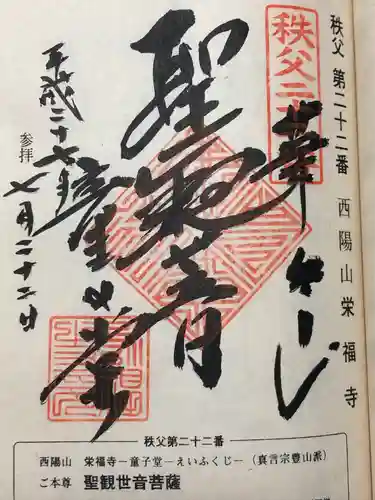 秩父 第二十二番 西陽山栄福寺
秩父二十二
聖観音
童子堂
平成二十七年
七月二十二日
参拝
秩父第二十二番
西陽山 栄福寺－童子堂－えいふくじ－（真言宗豊山派）
ご本尊 聖観世音菩薩